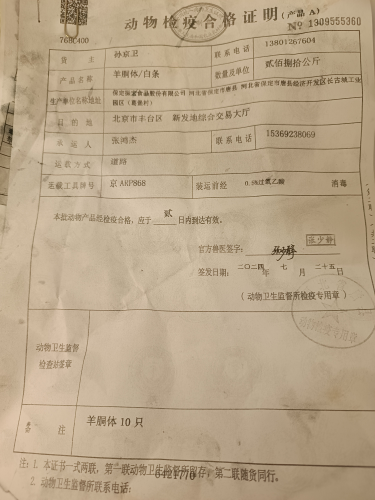 动物检疫合格证明(产品 A)
№ 1309555360
货主 孙京卫 联系电话 13801267604
产品名称 羊胴体/白条 数量及单位 贰佰捌拾公斤
生产单位名称地址 保定 食品股份有限公司 河北省保定市唐县 河北省保定市唐县经济开发区长古城工业园区(葛堡村)
目的地 北京市丰台区 新发地综合交易大厅
承运人 张鸿杰 联系电话 15369238069
运载方式 道路
运载工具牌号 京 ARP868 装运前经 0.3%过氧乙酸 消毒
本批动物产品经检疫合格,应于 贰 日内到达有效。
张少静
官方兽医签字:
签发日期: 二〇二四 年 七 月 二十五 日
(动物卫生监督所检疫专用章)
动物卫生监督检查站签章
备注 羊胴体 10 只
注: 1. 本证书一式两联,第一联动物卫生监督所留存,第二联随货同行。
6421770
2. 动物卫生监督所联系电话: